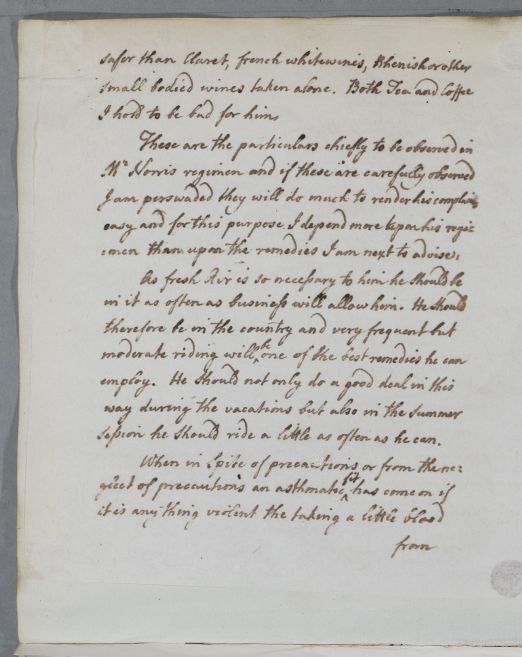 safer than Claret, french whitewines, Rhenish or other
small bodied wines taken alone. Both Tea and Coffee
I hold to be bad for him
These are the particulars chiefly to be observed in
Mr Norris regimen and if these are carefully observed
I am perswaded they will do much to render his complaint
easy and for this purpose I depend more upon his regi:
:men than upon the remedies I am next to advise.
As fresh Air is so necessary to him he should be
in it as often as business will allow him. He should
therefore be in the country and very frequent but
moderate riding will be one of the best remedies he can
employ. He should not only do a good deal in this
way during the vacations but also in the summer
session he should ride a little as often as he can.
When in spite of precautions or from the ne:
glect of precautions an asthmatic fit has come on if
it is any thing violent the taking a little blood
from